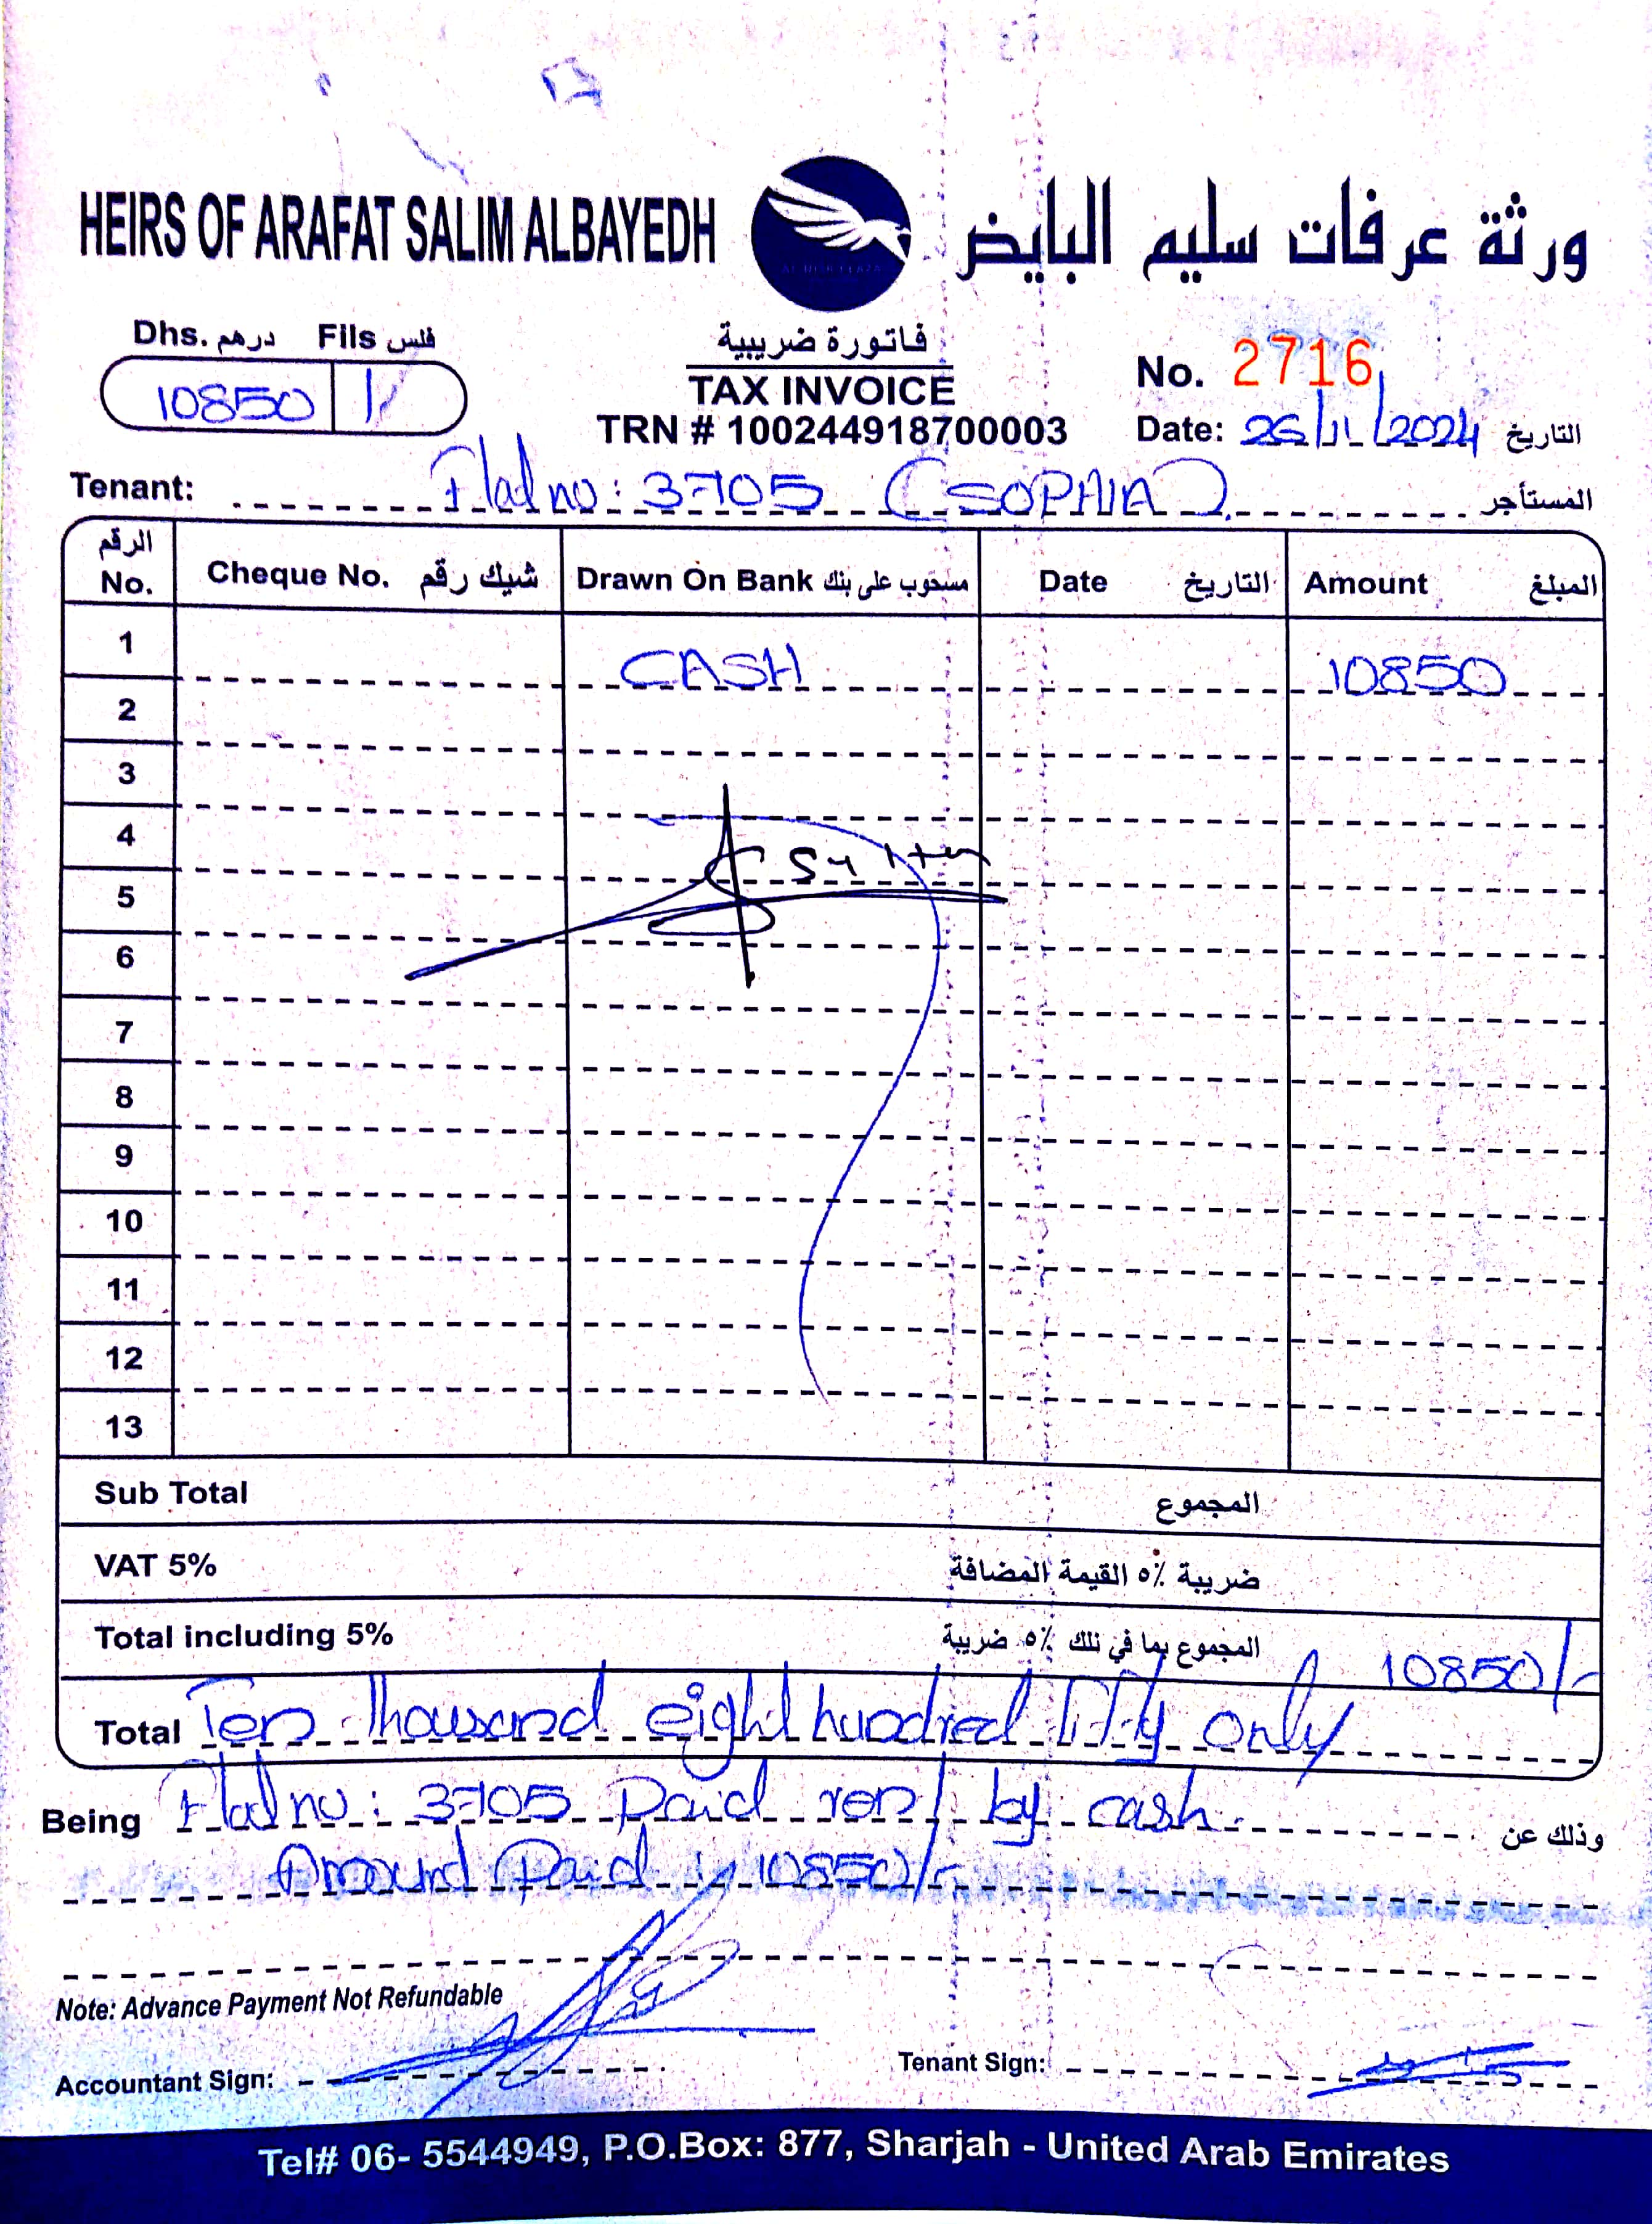 HEIRS OF ARAFAT SALIM ALBAYEDH
ورثة عرفات سليم البايض
Dhs. درهم Fils فلس
10850 /
فاتورة ضريبية
TAX INVOICE
TRN # 100244918700003
No. 2716
Date: 26/11/2024 التاريخ
Tenant: Flat no: 3705 (SOPHIA) المستأجر
الرقم No. Cheque No. شيك رقم Drawn On Bank مسحوب على بنك Date التاريخ Amount المبلغ
1 CASH 10850
2
3
4
5
6
7
8
9
10
11
12
13
Sub Total المجموع
VAT 5% ضريبة ٥٪ القيمة المضافة
Total including 5% المجموع بما في ذلك ٥٪ ضريبة 10850/-
Total Ten thousand eight hundred fifty only
Being Flat no: 3705 Paid rent by cash. وذلك عن
Amount Paid : 10850/-
Note: Advance Payment Not Refundable
Accountant Sign: Tenant Sign:
Tel# 06- 5544949, P.O.Box: 877, Sharjah - United Arab Emirates